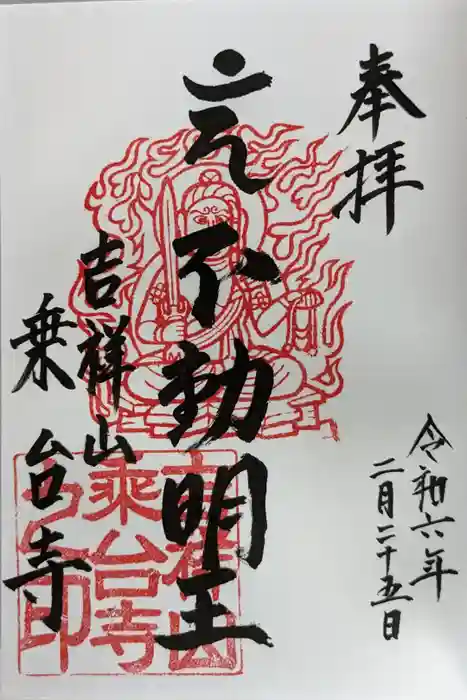 奉拝
令和六年
二月二十五日
不動明王
吉祥山
乗台寺
乗台寺